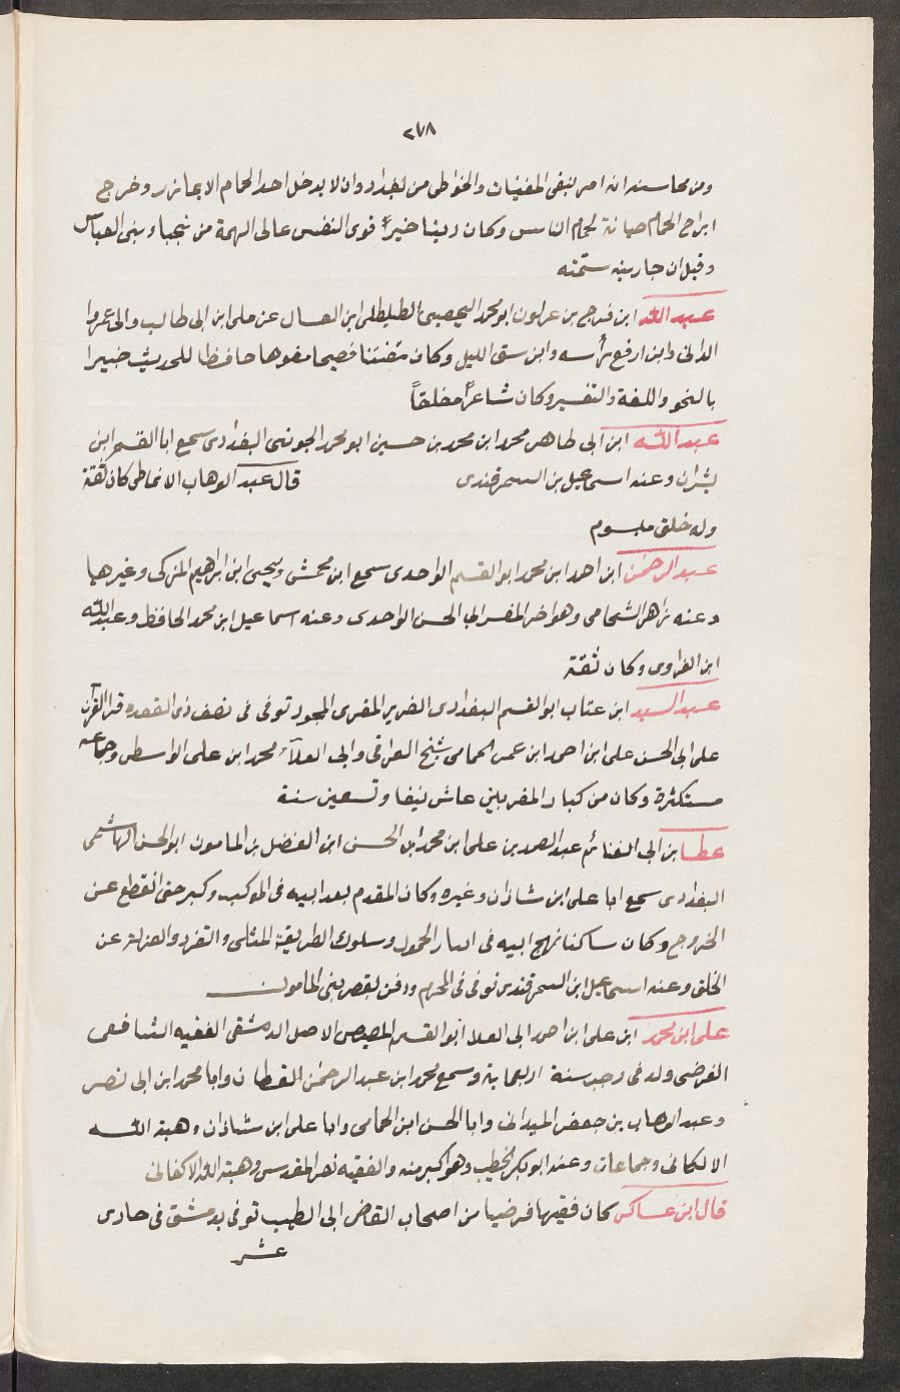 ٢٧٨
ومن محاسنه انه امر بنفي المغنيات والخواطى من بغداد وان لا يدخل احد الحمام الا بمازر وخرج
ابراج الحمام صيانة لحرم الناس وكان دينا خيراً قوى النفس عالى الهمة من نجباء بنى العباس
وقيل ان جاريته سمته
عبد الله ابن فرج بن غزلون ابو محمد اليحصبى الطليطلى ابن العسال عن ملى ابن ابى طالب وابى عمروا
الدانى وابن ارفع رأسه وابن سق الليل وكان متفننا فصيحا مفوها حافظا للحديث خبيرا
بالنحو واللغة والتفسير وكان شاعراً مفلقاً
عبد الله ابن ابى طاهر محمد ابن محمد بن حسين ابو محمد الجونى البغدادى سمع ابا القسم ابن
بشران وعنه اسماعيل بن السمرقندى قال عبد الوهاب الانماطى كان ثقة
وله خلق مليوم
عبد الرحمن ابن احمد ابن محمد ابو القسم الواحدى سمع ابن محمش ويحيى ابن ابراهيم المزكى وغيرهما
وعنه زاهر الشحامى وهو اخر المفسر ابى الحسن الواحدى وعنه اسماعيل ابن محمد الحافظ وعبد الله
ابن الفراوى وكان ثقة
عبد السيد ابن عتاب ابو القسم البغدادى الضرير المقرى المجود توفى فى نصف ذى القعده قرا القرآن
على ابى الحسن على ابن احمد ابن عمر الحمامى شيخ العراق وابى العلآء محمد ابن على الواسطى وجماعه
مستكثرة وكان من كبار المقريين عاش نيفا وتسعين سنة
عطا بن ابى الغنائم عبد الصمد بن على ابن محمد ابن الحسن ابن الفضل بن المامون ابو الحسن الهاشمى
البغدادى سمع ابا على ابن شاذان وغيره وكان المقدم بعد ابيه فى الموكب وكبر حتى انقطع عن
الخروج وكان ساكنا نهج ابيه فى ايسار الخمول وسلوك الطريقة المثلى والتفرد والعزلة عن
الخلق وعنه اسماعيل ابن السمرقندى توفى فى المحرم ودفن بقصر بنى المامون
على ابن محمد ابن على ابن احمد ابى العلا ابو القسم المصيصى الاصل الدمشقى الفقيه الشافعى
الفرضى ولد فى رجب سنة اربعماية وسمع محمد ابن عبد الرحمن القطان وابا محمد ابن ابى نصر
وعبد الوهاب بن جعفر الميدانى وابا الحسن ابن الحمامى وابا على ابن شاذان وهبة الله
الالكائى وجماعات وعنه ابو بكر الخطيب وهو اكبر منه والفقيه نصر المقدسى وهبة الله الاكفانى
قال ابن عساكر كان فقيها فرضيا من اصحاب القاضى ابى الطيب توفى بدمشق فى حادى
عشر